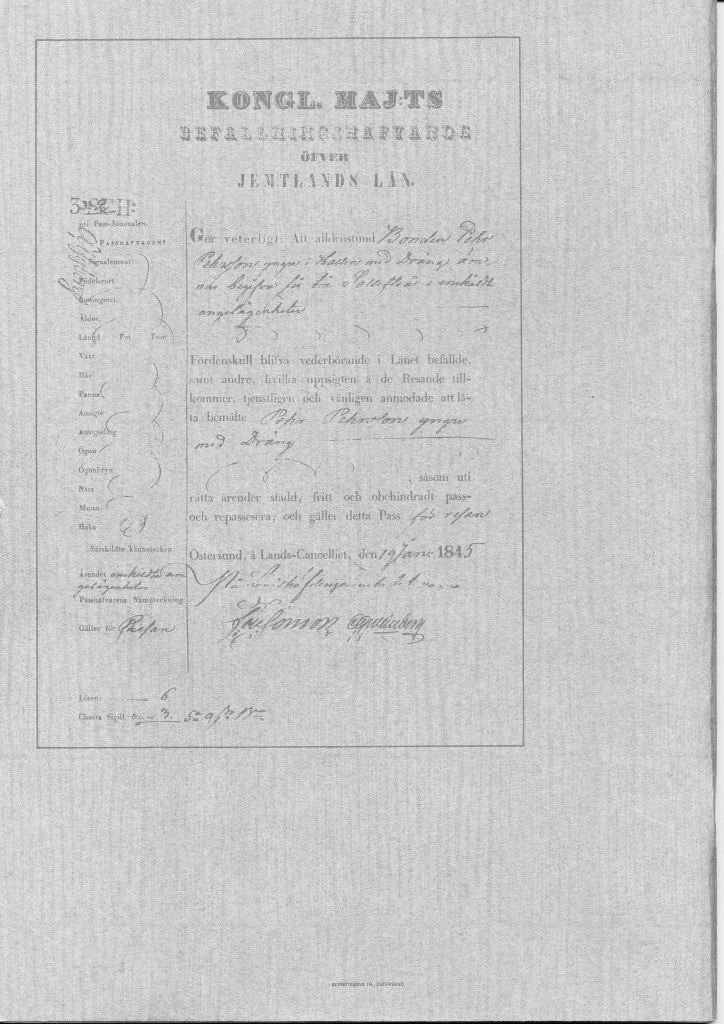 KONGL. MAJ:TS
BEFALLNINGSHAFVANDE
ÖFVER
JEMTLANDS LÄN.
uti Pass-Journalen.
PASSHAFVARENS
Signalement.
Födelseort.
Boningsort.
Ålder.
Längd Fot Tum
Växt
Hår
Panna
Ansigte
Ansigtsfärg
Ögon
Ögonbryn
Näsa
Munn
Haka
Särskildte kännetecken.
Ärendet enskildta an
gelägenheter
Passhafvarens Namnteckning
Gäller för Resan
Lösen: 6
Charta Sigill. 3.
Gör veterligt: Att alldenstund Bonden Pehr
Pehrsson yngre i Hallen med Dräng äm-
nar begifva sig till Sollefteå i enskildta
angelägenheter
Fördenskull blifva vederbörande i Länet befallde,
samt andre, hvilka uppsigten å de Resande till-
kommer, tjenstligen och vänligen anmodade att lå-
ta bemälte Pehr Pehrsson yngre
med Dräng
, såsom uti
rätta ärender stadd, fritt och obehindradt pass-
och repassesera; och gäller detta Pass för resan
Östersund, å Lands-Cancelliet, den 19 Janr. 1845
BERNDTSSONS TR., ÖSTERSUND